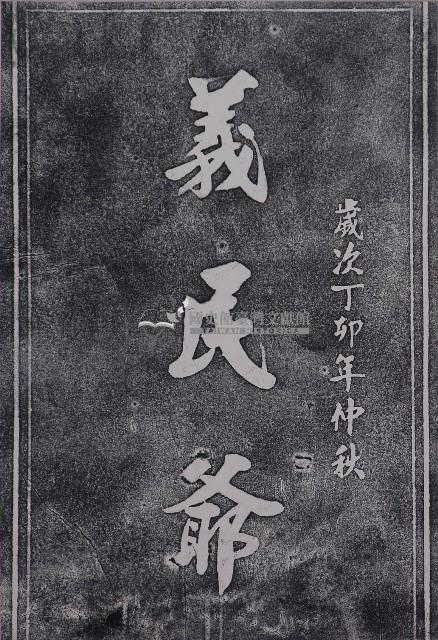 歲次丁卯年仲秋
義民爺
國史館臺灣文獻館
TAIWAN HISTORICA